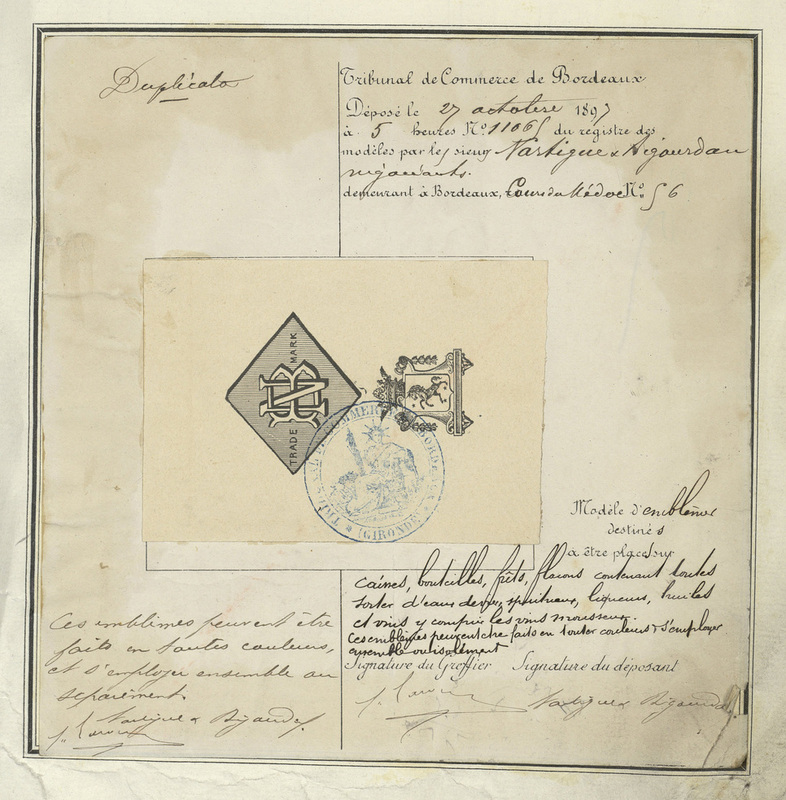 Duplicata
Tribunal de Commerce de Bordeaux
Déposé le 27 octobre 1897
à 5 heures No 11065 du régistre des
modèles par les sieurs Nartigue & Bigourdan
négociants.
demeurant à Bordeaux, Cours du Médoc No 56
TRADE MARK
TRIBUNAL DE COMMERCE DE BORDEAUX
(GIRONDE)
Modèle d'emblèmes
destinés
à être placés sur
caisses, bouteilles, fûts, flacons contenant toutes
sortes d'eaux de vie, spiritueux, liqueurs, huiles
et vins y compris les vins mousseux.
Ces emblèmes peuvent être faits en toutes couleurs & s'employer
ensemble ou isolément
Signature du Greffier Signature du déposant
Nartigue & Bigourdan
Ces emblèmes peuvent être
faits en toutes couleurs,
et s'employer ensemble ou
séparément.
Nartigue & Bigourdan